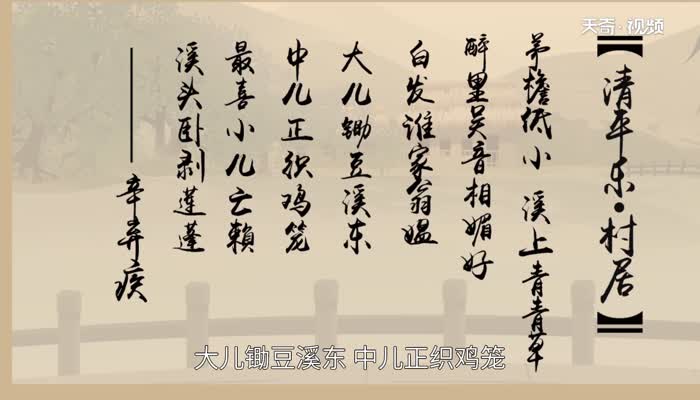 天奇·视频
【清平乐·村居】
茅檐低小 溪上青青草
醉里吴音相媚好
白发谁家翁媪
大儿锄豆溪东
中儿正织鸡笼
最喜小儿亡赖
溪头卧剥莲蓬
——辛弃疾
大儿锄豆溪东 中儿正织鸡笼